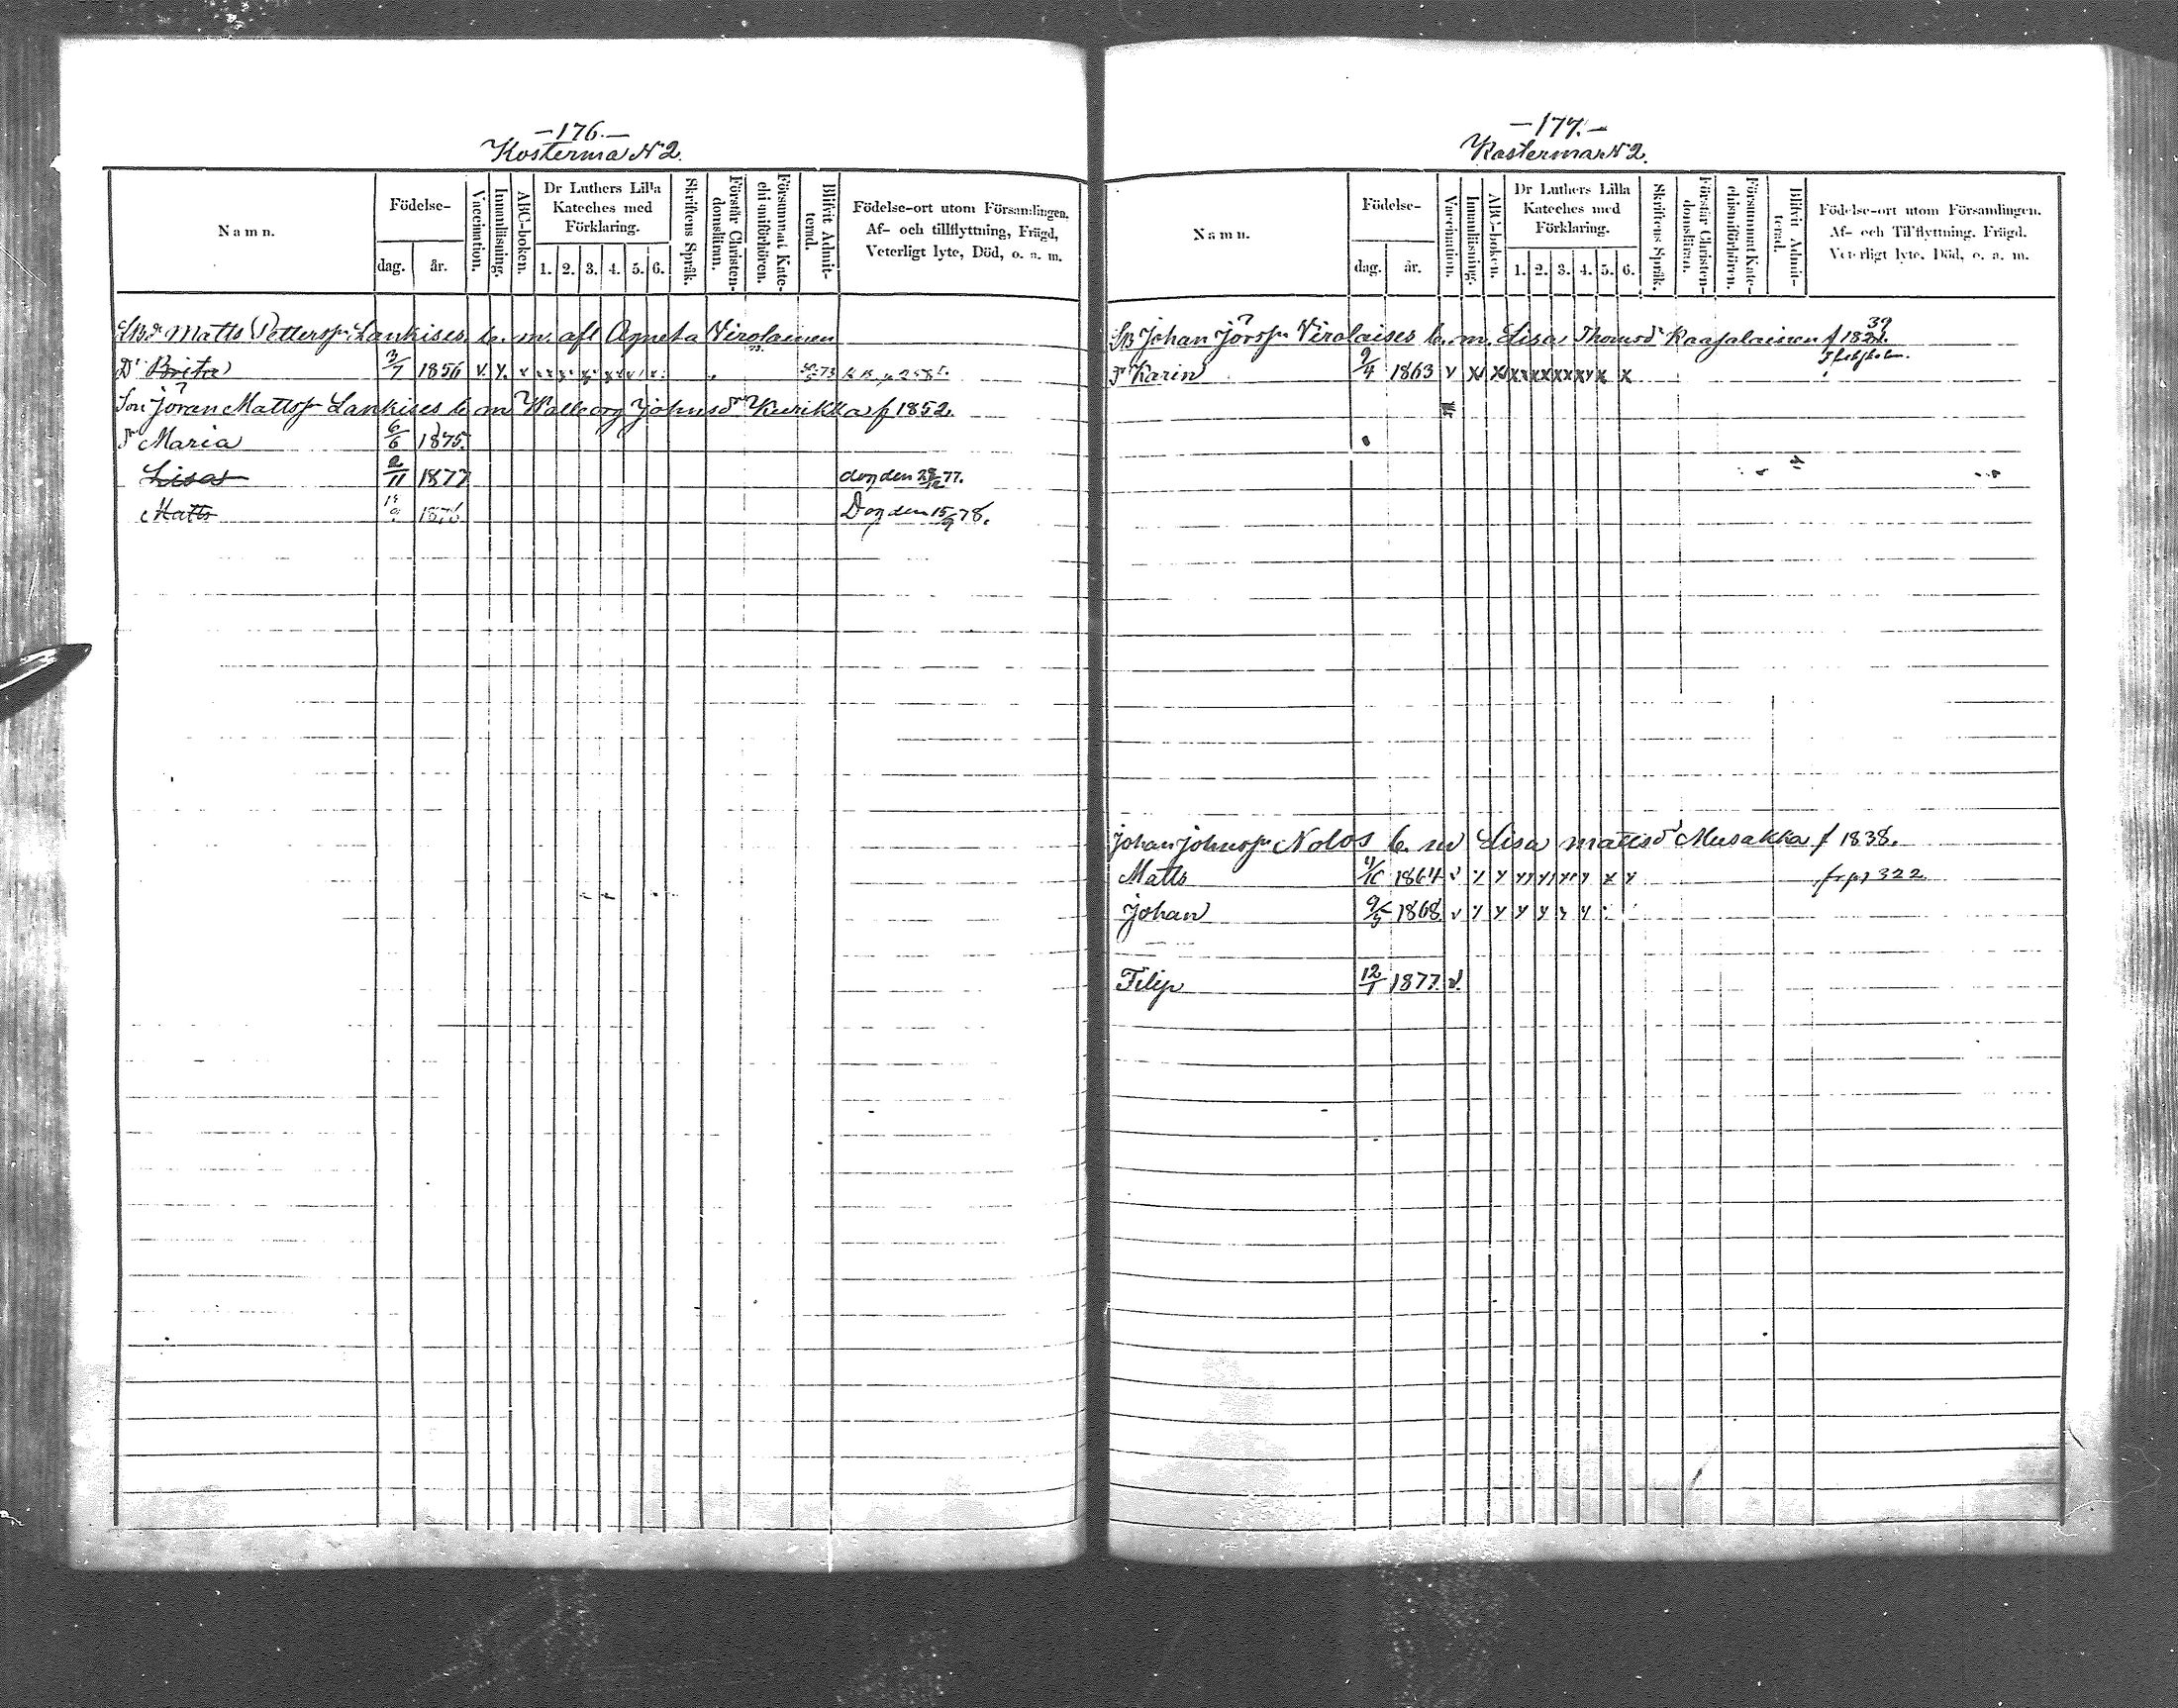 —176.—
Kosterma N 2.
Namn.
Födelse-
dag.
år.
Vaccination.
Innanläsning.
ABC-boken.
Dr Luthers Lilla
Kateches med
Förklaring.
1. 2. 3. 4. 5. 6.
Skriftens Språk.
Förstår Christen-
domsläran.
Försummat Kate-
chismiförhören.
Blifvit Admit-
terad.
Födelse-ort utom Församlingen,
Af- och tillflyttning, Frägd,
Veterligt lyte, Död, o. s. m.
Matts Petterss. Lankises b. m. afl Agneta Virolainen
Dr Brita 3/7 1856 v. x. x
Son Jöran Mattss. Lankises b m Walborg Johnsdr Kurikka f 1852.
Dr Maria 6/6 1875.
Lisa 2/11 1877 dog den 28/12 77.
Matts Dog den 15/9 78.
—177.—
Kosterma N 2.
Namn.
Födelse-
dag.
år.
Vaccination.
Innanläsning.
ABC-boken.
Dr Luthers Lilla
Kateches med
Förklaring.
1. 2. 3. 4. 5. 6.
Skriftens Språk.
Förstår Christen-
domsläran.
Försummat Kate-
chismiförhören.
Blifvit Admit-
terad.
Födelse-ort utom Församlingen.
Af- och Tillflyttning, Frägd.
Veterligt lyte, Död, o. s. m.
Johan Jörss. Virolaises b. m. Lisa Thomsdr Raajalainen f 18 39
Dr Karin 9/4 1863 v x x xx xx xx xx x x
Johan Johnss. Nolos b. m Lisa Mattsdr Musakka f 1838.
Matts 1864 v x x x x fr p 322
Johan 1868 v x x x x x x
Filip 12/1 1877. v.